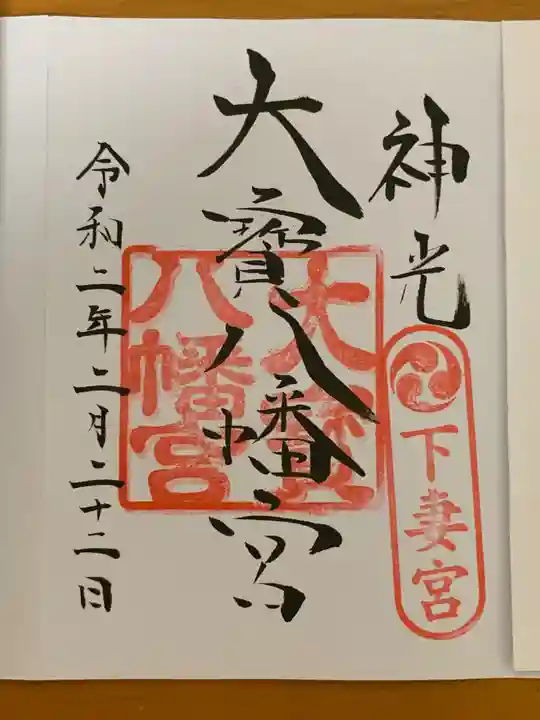 神光
下妻宮
大寳八幡宮
大寳八幡宮
令和二年二月二十二日